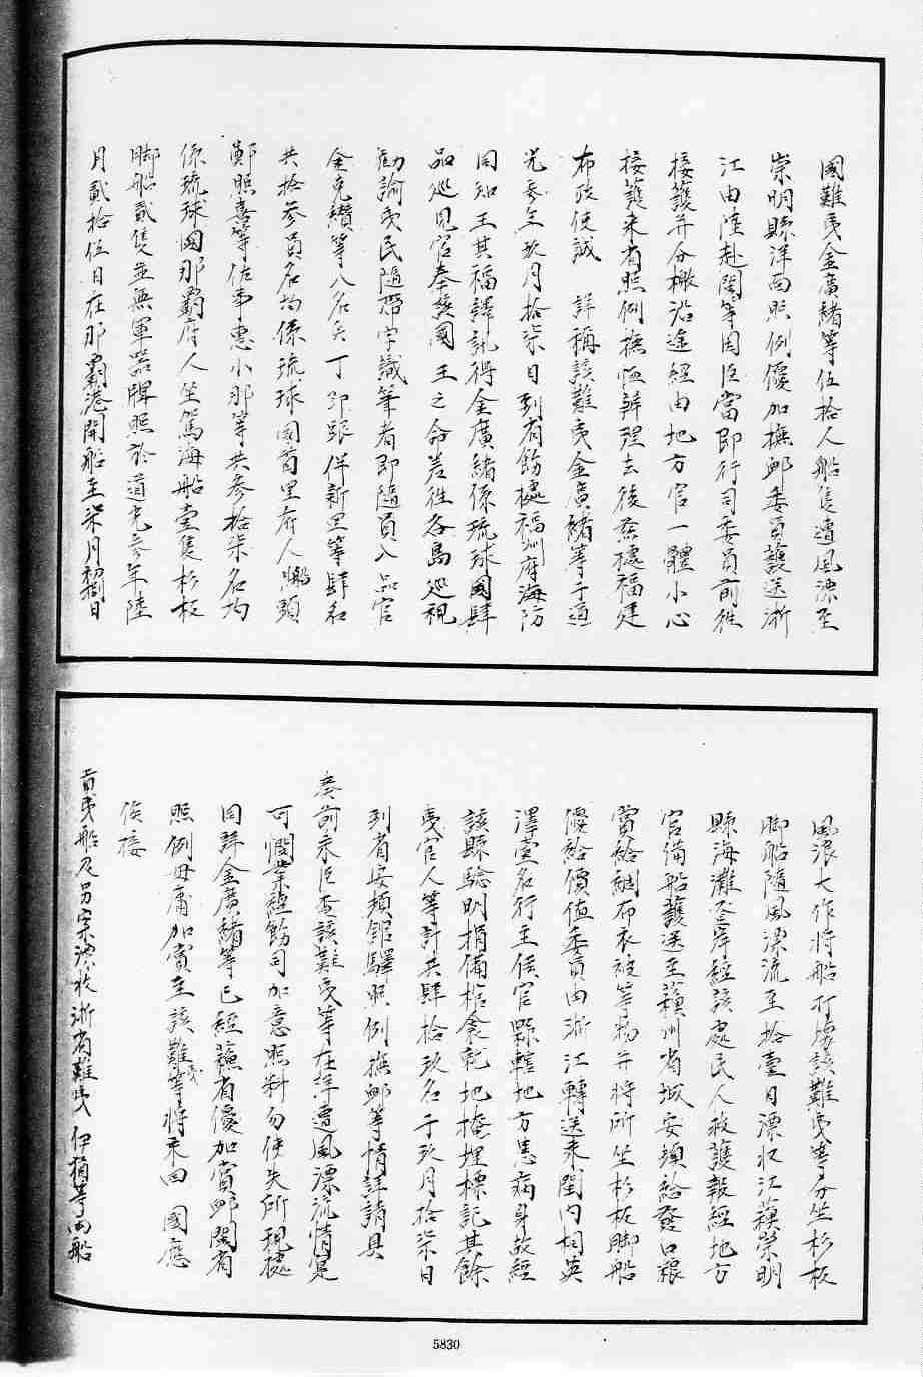 國難夷金廣緒等伍拾人船隻遭風漂至
崇明縣洋面照例優加撫卹委員護送浙
江由陸赴閩等因臣當即行司委員前往
接護并分檄沿途經由地方官一體小心
接護来省照例撫恤辦理去後茲據福建
布政使誠 詳稱該難夷金廣緒等于道
光叁年玖月拾柒日到省飭據福州府海防
同知王其福譯訊得金廣緒係琉球國肆
品巡見官奉該國王之命差往各島巡視
勸諭夷民隨帶字識筆者即隨員入品官
金克纘等八名兵丁即跟伴新里等肆名
共拾叁員名均係琉球國首里府人 頭
鄭照熹等佐事惠小那等共叁拾柒名均
係琉球國那霸府人坐駕海船壹隻杉板
脚船貳隻並無軍器牌照於道光叁年陸
月貳拾伍日在那霸港開船至柒月初捌日
風浪大作将船打壞該難夷等分坐杉板
脚船隨風漂流至拾壹日漂收江蘇崇明
縣海灘登岸經該處民人救護報經地方
官備船護送至蘇州省城安頓給發口糧
賞給綢布衣被等物并将所坐杉板脚船
優給價值委員由浙江轉送来閩内柯英
澤壹名行至侯官縣轄地方患病身故經
該縣驗明捐備棺衾就地掩埋標記其餘
夷官人等計共肆拾玖名于玖月拾柒日
到省安頓館驛照例撫卹等情詳請具
奏前来臣查該難夷等在洋遭風漂流情寔
可憫業經飭司加意照料勿使失所現據
司詳金廣緒等已經蘇省優加賞卹閩省
照例毋庸加賞至該難夷等将来回 國應
俟接
貢夷船及另案漂收浙省難夷 伊 等兩船
5830